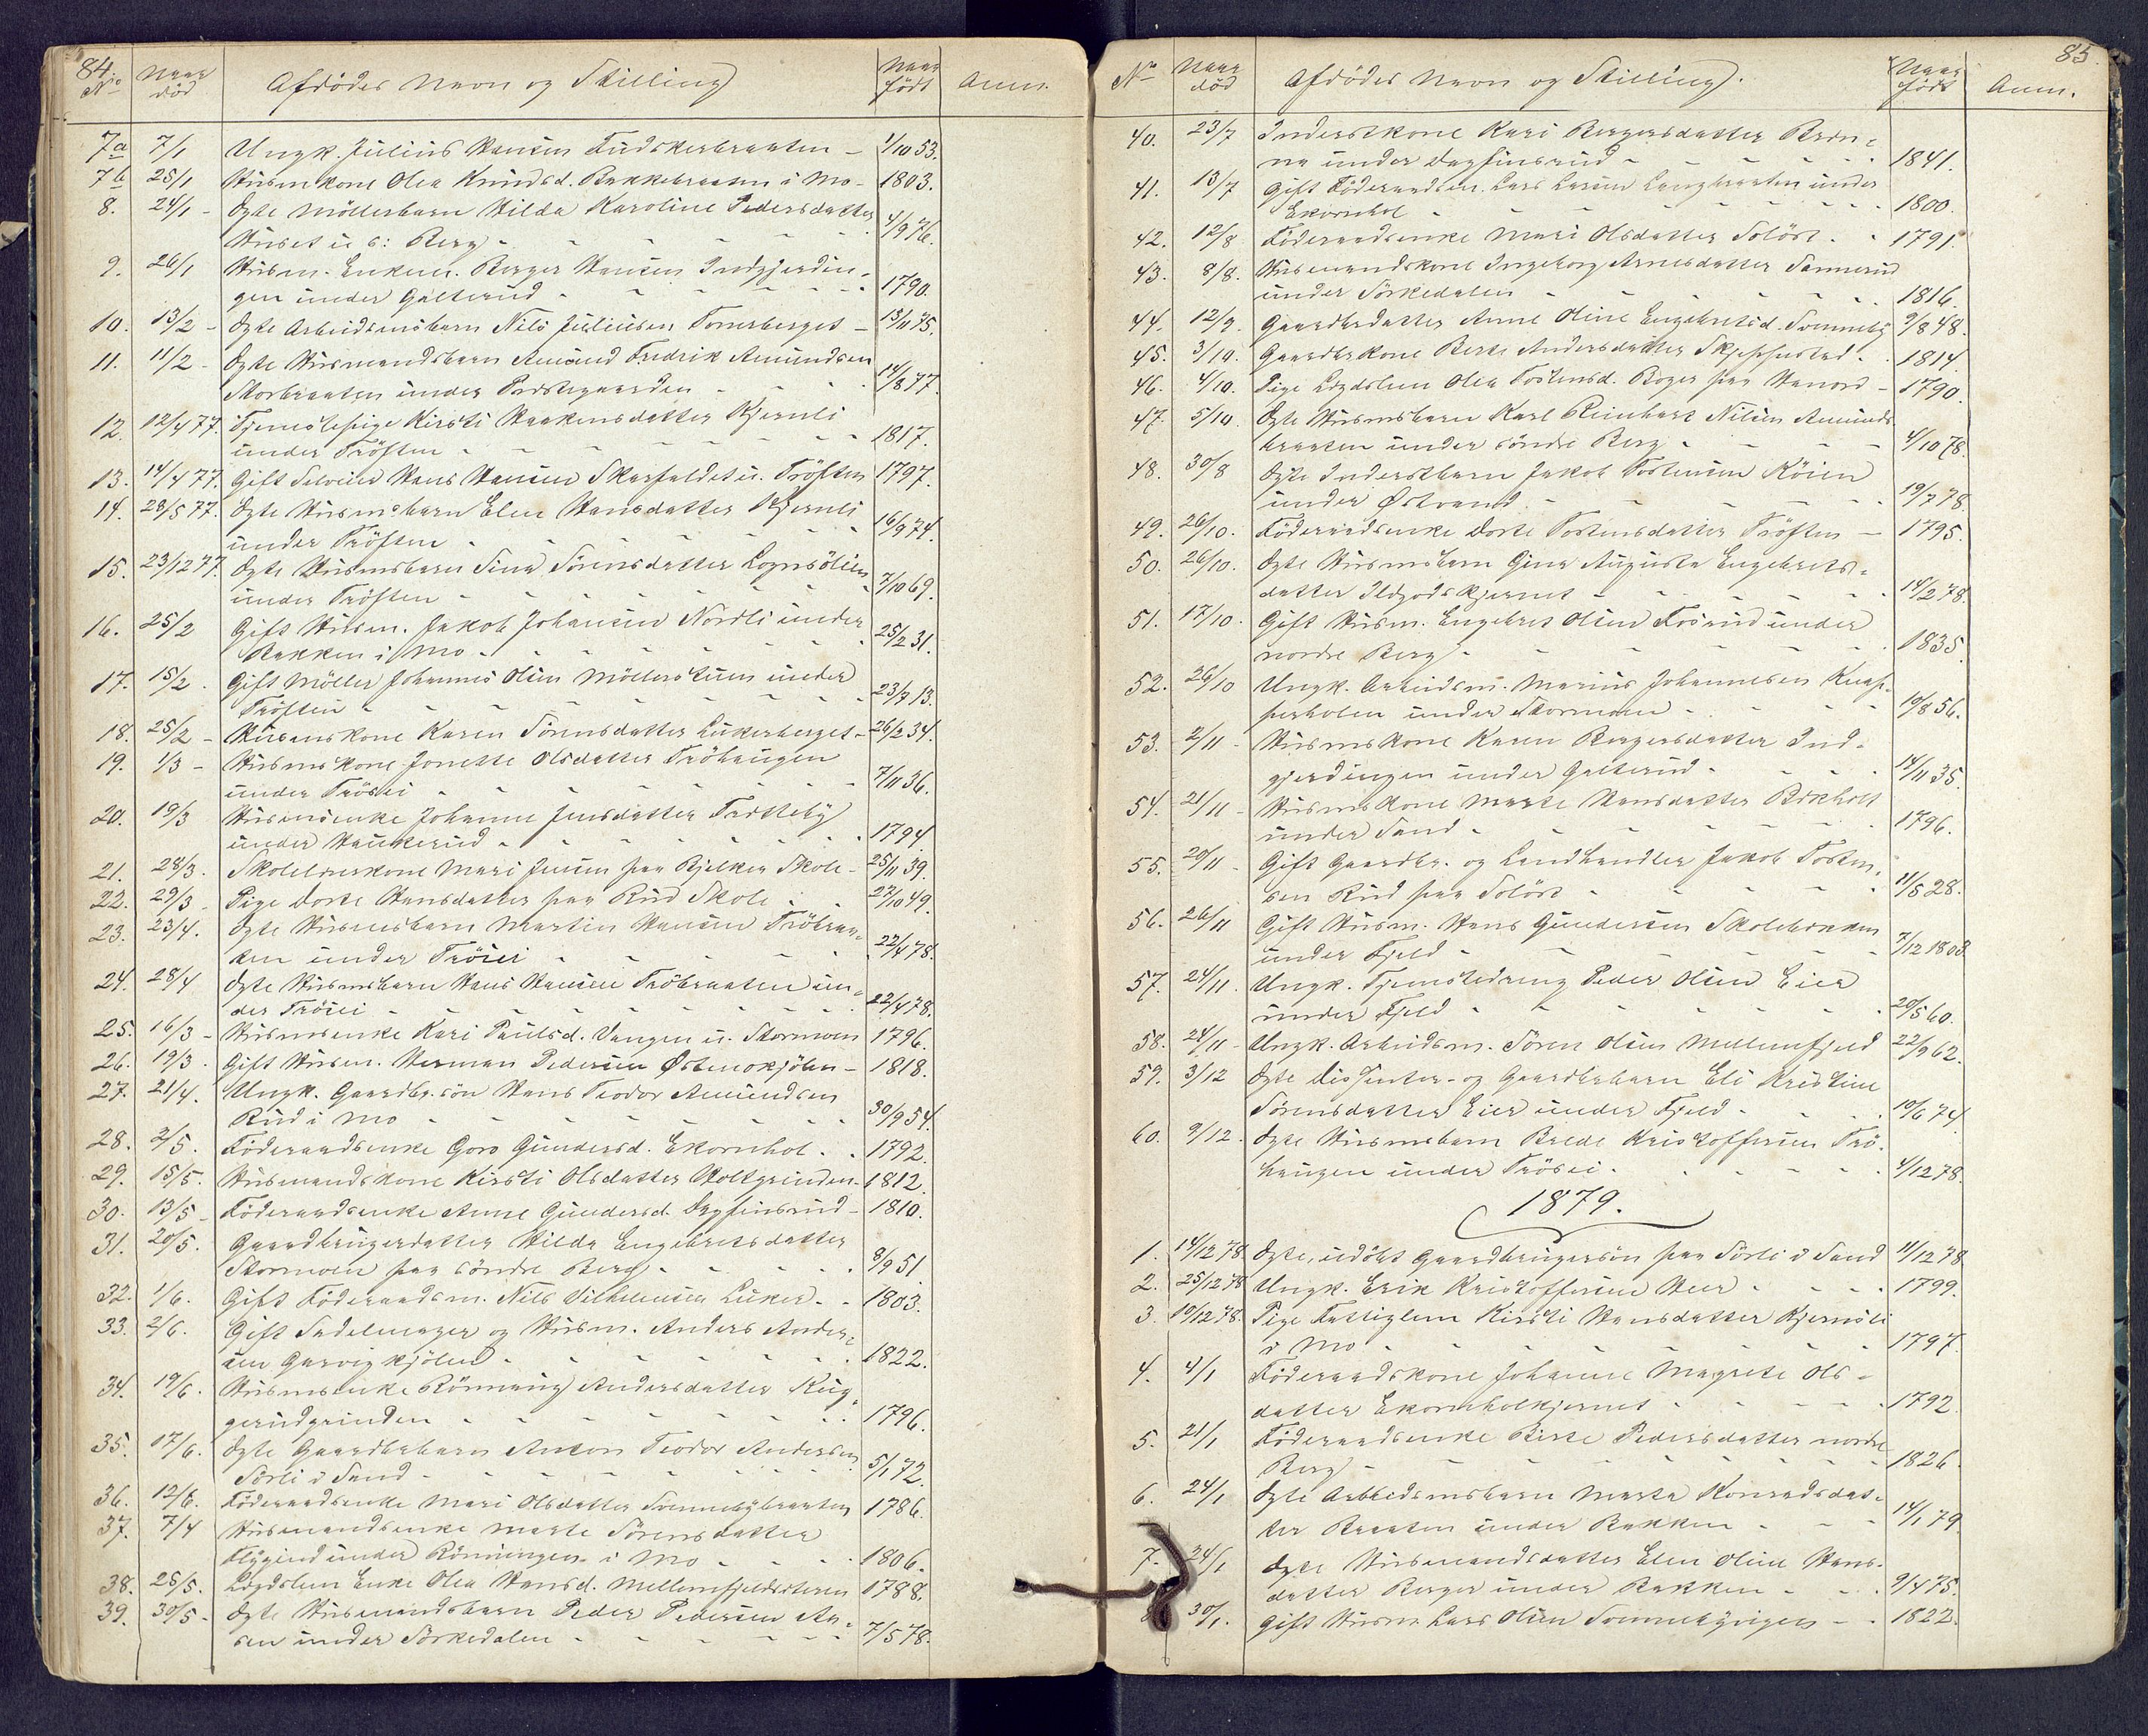 84.
No Naar død Afdödes Navn og Stilling Naar født Anm.
7a 7/1 Ungk. Julius Hansen Tudskerbraaten - 1/10 53.
7b 25/1 Husmkone Olea Knudsd. Bakkebraaten i Mo - 1803.
8. 24/1 - Ægte Möllerbarn Hilda Karoline Pedersdatter
Huset u. s: Berg - 4/9 76.
9. 26/1 Husm. Enkem. Borger Hansen Indgjerdin-
gen under Galterud - 1790.
10. 13/2 - Ægte Arbeidsmsbarn Nils Juliusen Tomsberget - 13/11 75.
11. 11/2 - Ægte Husmandsbarn Amund Fredrik Amundsen
Storbraaten under Præstegaarden - 14/8 77.
12. 12/4 77. Tjenestepige Kirsti Haakensdatter Kjernli
under Tröften - 1817.
13. 14/4 77. Gift Hans Hansen Skarfaldet u. Tröften 1797.
14. 28/5 77. Ægte Husmsbarn Elen Hansdatter Kjernli
under Tröften - 16/9 74.
15. 23/12 77. Ægte Husmsbarn Sina Sörensdatter
under Tröften - 7/10 69.
16. 25/2 Gift Husm. Jakob Johansen Nordli under
Bakken i Mo - 25/2 31.
17. 15/2. Gift Möller Johannes Olsen Möllerstuen under
Tröften - 23/7 13.
18. 25/2 - Husmskone Karen Sörensdatter Lukerberget - 26/2 34.
19. 1/3 - Husmskone Jonette Olsdatter Tröhaugen
under Trösei - 7/11 36.
20. 19/3 Husmsenke Johanne Jensdatter Tætteby
under Haukerud - 1794
21. 28/3. Skolelærerkone Mari Jensen paa Bjelker Skole - 25/11 39.
22. 29/3. Pige Dorte Hansdatter paa Rud Skole - 27/10 49.
23. 23/4. Ægte Husmsbarn Martin Hansen Tröbraa-
ten under Trösei - 22/4 78.
24. 28/4 Ægte Husmsbarn Hans Hansen Tröbraaten un-
der Trösei - 22/4 78.
25. 16/3 - Husmsenke Kari Paulsd. Vangen u. Stormoen 1796.
26. 19/3. Gift Husm. Herman Pedersen Østmokjölen - 1818.
27. 21/4. Ungk. Gaardbr.sön Hans Teodor Amundsen
Rud i Mo - 30/9 54.
28. 2/5. Föderaadsenke Goro Gundersd. Ekornhol - 1792.
29. 15/5. Husmandskone Kirsti Olsdatter Holtgrinden - 1812.
30. 13/5 - Föderaadsenke Anne Gundersd. Dagfinsrud - 1810.
31. 20/5. Gaardbrugerdatter Hilda Engebretsdatter
Stormoen paa söndre Berg - 8/9 51
32. 1/6. Gift Föderaadsm. Nils Vilhelmsen Luker - 1803.
33. 2/6. Gift Sadelmager og Husm. Anders Ander-
sen Garvigkjölen - 1822.
34. 19/6. Husmsenke Rönnaug Andersdatter Rug-
gerudgrinden - 1796.
35. 17/6. Ægte Gaardbrbarn Anton Teodor Andersen
Sörli i Sand - 5/1 72.
36. 12/6. Föderaadsenke Mari Olsdatter Sommebybraaten 1786.
37. 7/4 Husmandsenke Marte Sörensdatter
under Rönningen i Mo - 1806.
38. 25/5. Lægdslem Enke Olea Hansd. Mellemfjeldsæteren 1788.
39. 30/5 - Ægte Husmandsbarn Peder Pedersen Aa-
sen under Sörkedalen - 7/5 78.
85.
No Naar död Afdödes Navn og Stilling. Naar født Anm.
40. 23/7 Inderstkone Kari Borgersdatter Bræn-
na under Dagfinsrud - 1841.
41. 13/7 Gift Föderaadsm. Lars Larsen Langbraaten under
Ekornhol - 1800.
42. 12/8 Föderaadsenke Mari Olsdatter Solöst - 1791.
43. 8/8. Husmandskone Ingeborg Arnesdatter Sannerud
under Sörkedalen - 1816.
44. 12/9. Gaardbrdatter Anne Oline Engebretsd. Sommeby 9/8 48.
45. 3/10. Gaardbrkone Berte Andersdatter Skjeppestad - 1814.
46. 4/10. Pige Lægdslem Olea Tostensd. Boger paa Hanord - 1790.
47. 5/10. Ægte Husmsbarn Karl Reinhart Nilsen Amunds-
braaten under söndre Berg - 4/10 78.
48. 30/8 Ægte Inderstbarn Jakob Tostensen Köien
under Østvand - 19/7 78.
49. 26/10. Föderaadsenke Dorte Tostensdatter Tröften - 1795.
50. 26/10. Ægte Husmsbarn Gina Augusta Engebrets-
datter Ildgodskjernet - 14/2 78.
51. 17/10. Gift Husm. Engebret Olsen Fosrud under
nordre Berg - 1835.
52. 26/10 Ungk. Arbeidsm. Marius Johannesen Knap-
perholen under Stormoen - 10/8 56.
53. 2/11 - Husmskone Karen Borgersdatter Ind-
gjerdingen under Galterud - 14/11 35.
54. 21/11 - Husmskone Marte Hansdatter Bækholt
under Sand - 1796.
55. 20/11 - Gift Gaardbr. og Landhandler Jakob Tosten-
sen Rud paa Solöst - 11/5 28.
56. 26/11 Gift Husm. Hans Gundersen Skolebakken
under Fjeld - 7/12 1803.
57. 24/11. Ungk. Tjenestedreng Peder Olsen Eier
under Fjeld - 20/5 60.
58. 24/11 - Ungk. Arbeidsm. Sören Olsen Mellemfjeld 22/9 62.
59. 3/12 Ægte Dissenter- og Gaardbrbarn Eli Kristine
Sörensdatter Eier under Fjeld - 10/6 74.
60. 9/12. Ægte Husmsbarn Brede Kristoffersen Trö-
haugen under Trösei - 4/12 78.
1879.
1. 14/12 78 Ægte, udöbt Gaardbrugersön paa Sörli i Sand 11/12 78
2. 25/12 78 Ungk. Erik Kristoffersen Veer - 1799.
3. 19/12 78. Pige Fattiglem Kirsti Hansdatter Kjernsli
i Mo - 1797.
4. 4/1 Föderaadskone Johanne Magrete Ols-
datter Ekornholkjernet - 1792.
5. 21/1 Föderaadsenke Berte Pedersdatter nordre
Berg - 1826.
6. 24/1 Ægte Arbeidsmsbarn Marta Konradsdat-
ter Braaten under Bakken - 14/1 79.
7. 24/1 Ægte Husmandsdatter Elen Oline Hans-
datter Berger under Bakken - 9/4 75.
30/1. Gift Husm. Lars Olsen Sommebyvigen - 1822.